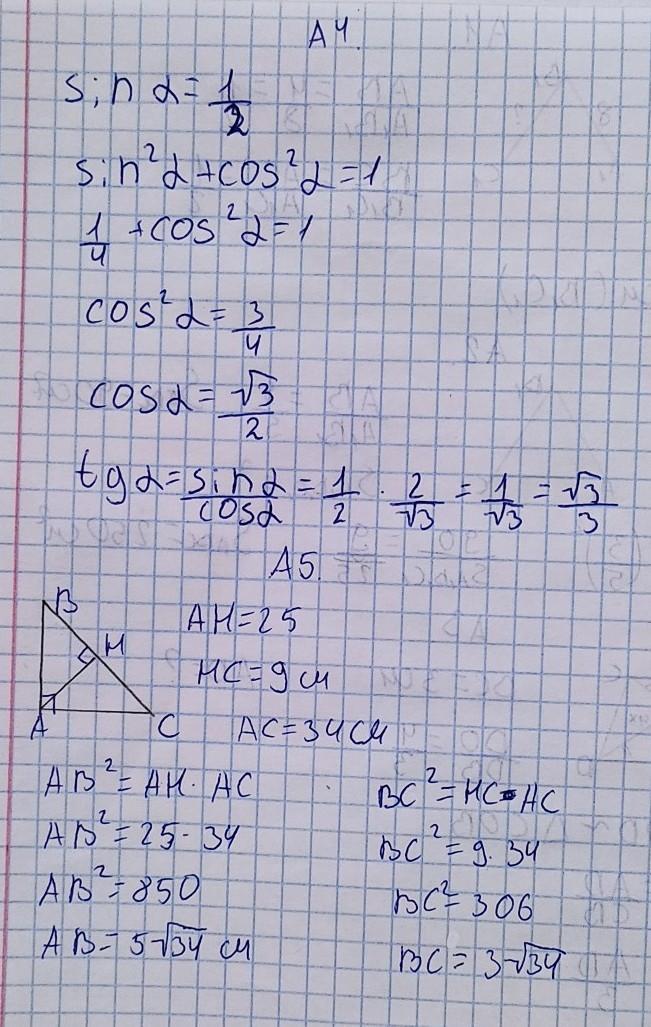 А4.
sin α = 1/2
sin²α + cos²α = 1
1/4 + cos²α = 1
cos²α = 3/4
cos α = √3/2
tg α = sin α/cos α = 1/2 · 2/√3 = 1/√3 = √3/3
А5.
B
H
A
C
AH = 25
HC = 9 см
AC = 34 см
AB² = AH · AC
AB² = 25 · 34
AB² = 850
AB = 5√34 см
BC² = HC · AC
BC² = 9 · 34
BC² = 306
BC = 3√34